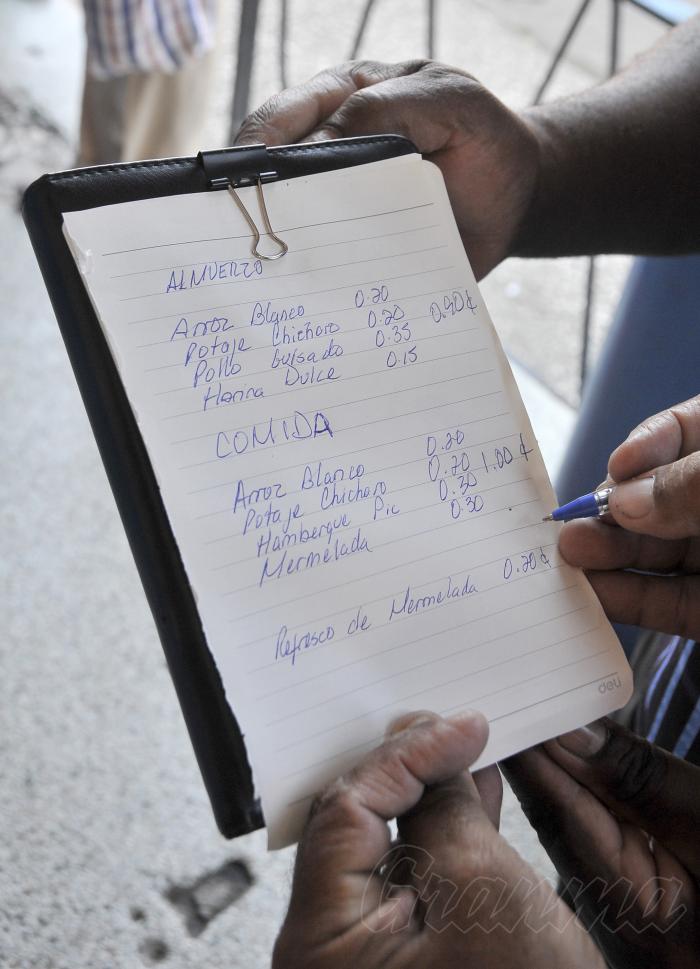 ALMUERZO
Arroz Blanco 0.20
Potaje Chicharo 0.20 0.90¢
Pollo Guisado 0.35
Harina Dulce 0.15
COMIDA
Arroz Blanco 0.20
Potaje Chicharo 0.20 1.00 ¢
Hamberque Pic 0.30
Mermelada 0.30
Refresco de Mermelada 0.20¢
deli
Granma